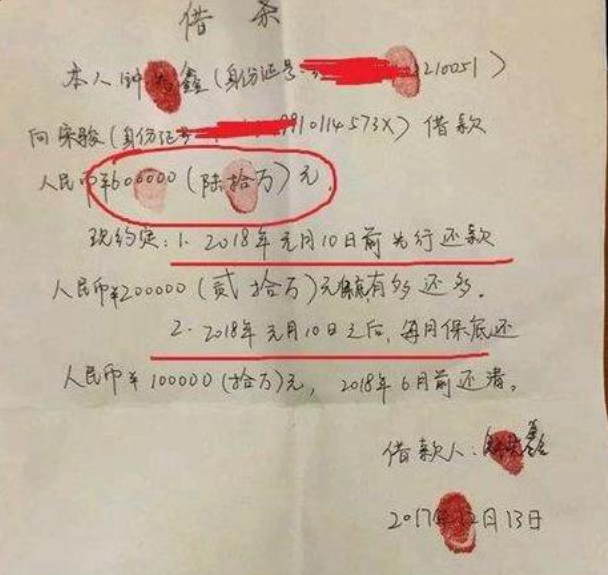 借条
本人钟 鑫(身份证号: 210051)
向宋骏(身份证号 910114573X)借款
人民币¥600000(陆拾万)元,
现约定:1. 2018年元月10日前先行还款
人民币¥200000(贰拾万)元 有多还多。
2. 2018年元月10日之后,每月保底还
人民币¥100000(拾万)元,2018年6月前还清。
借款人: 鑫
2017年12月13日